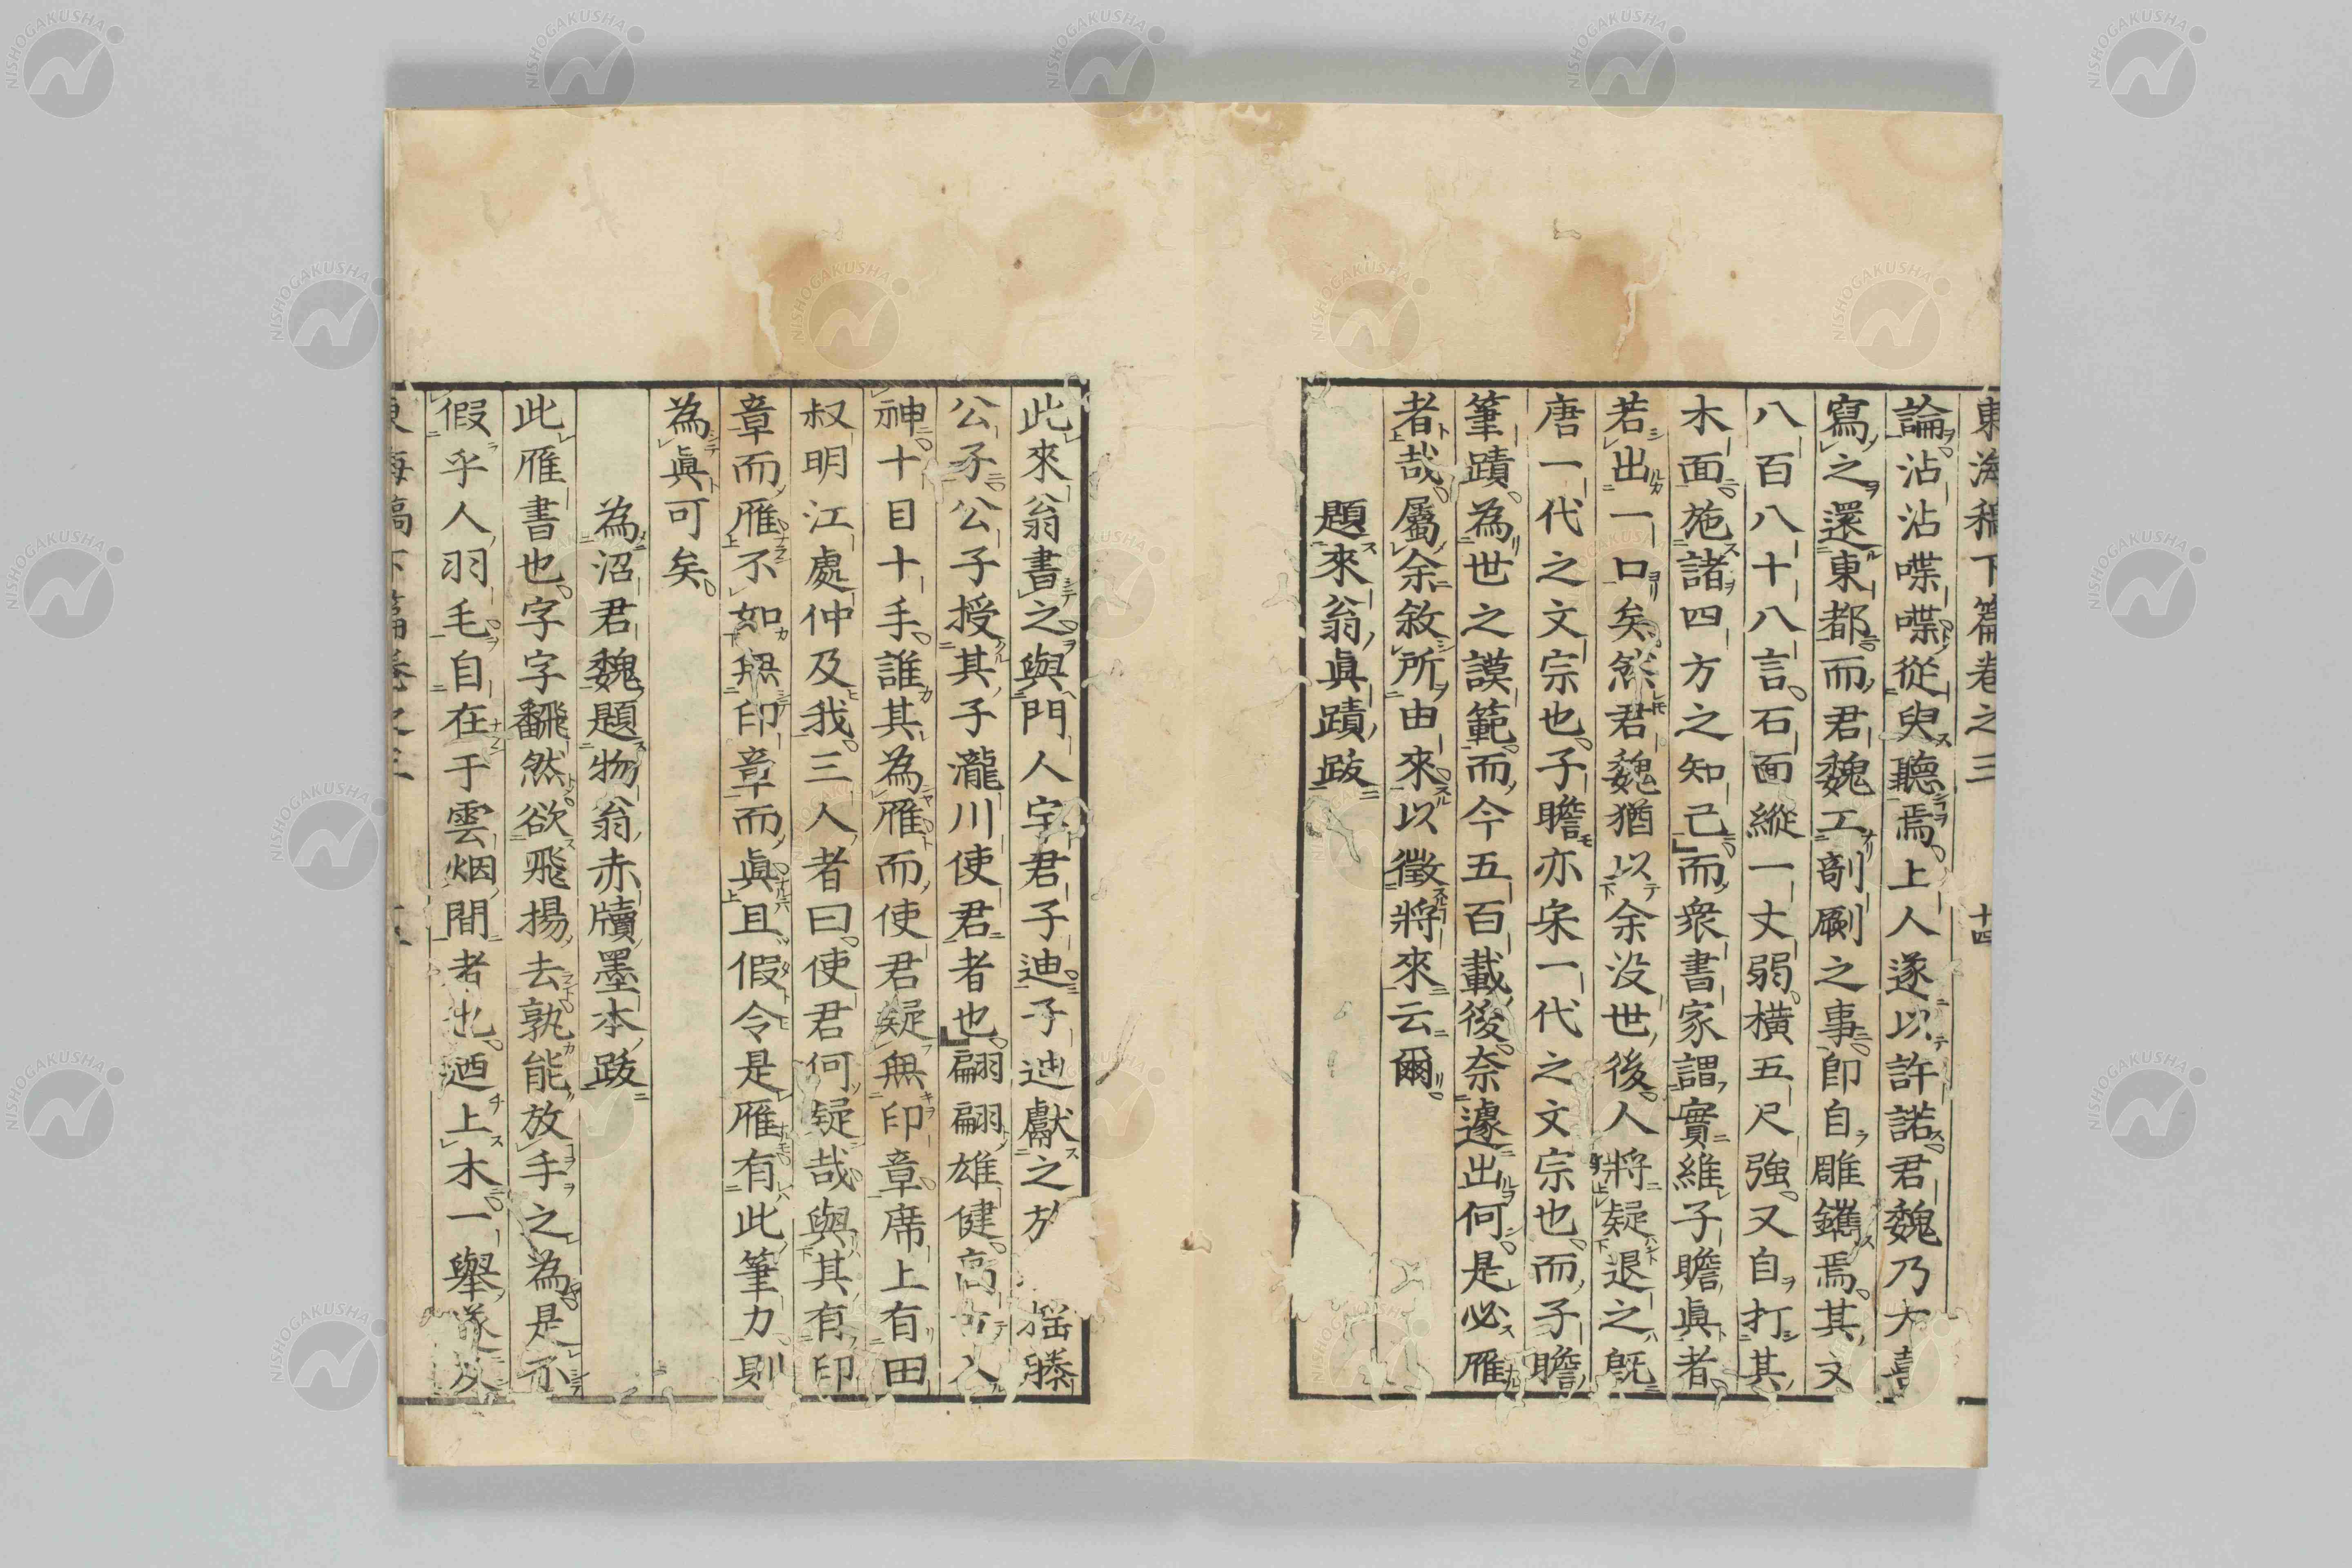 東海稿下篇卷之三 十四
論沾沾喋喋從臾聽焉上人遂以許諾君魏乃大喜
寫之還東都而君魏工剞劂之事卽自雕鐫焉其文
八百八十八言石面縱一丈弱橫五尺強又自打其
木面施諸四方之知己而衆書家謂實維子瞻眞者
若出一口矣然君魏猶以余没世後人將疑退之旣
唐一代之文宗也子瞻亦宋一代之文宗也而子瞻
筆蹟為世之謨範而今五百載後奈遽出何是必雁
者哉屬余敘所由來以徵將來云爾
題來翁眞蹟跋
此來翁書之與門人宇君子迪子迪獻之於 搖滕
公子公子授其子瀧川使君者也翩翩雄健高 入
神十目十手誰其為雁而使君疑無印章席上有田
叔明江處仲及我三人者曰使君何疑哉與其有印
章而雁不如無印章而眞且假令是雁有此筆力則
為眞可矣
為沼君魏題物翁赤牘墨本跋
此雁書也字字飜然欲飛揚去孰能放手之為是不
假乎人羽毛自在于雲烟間者也迺上木一舉遂及
東海稿下篇卷之三
NISHOGAKUSHA